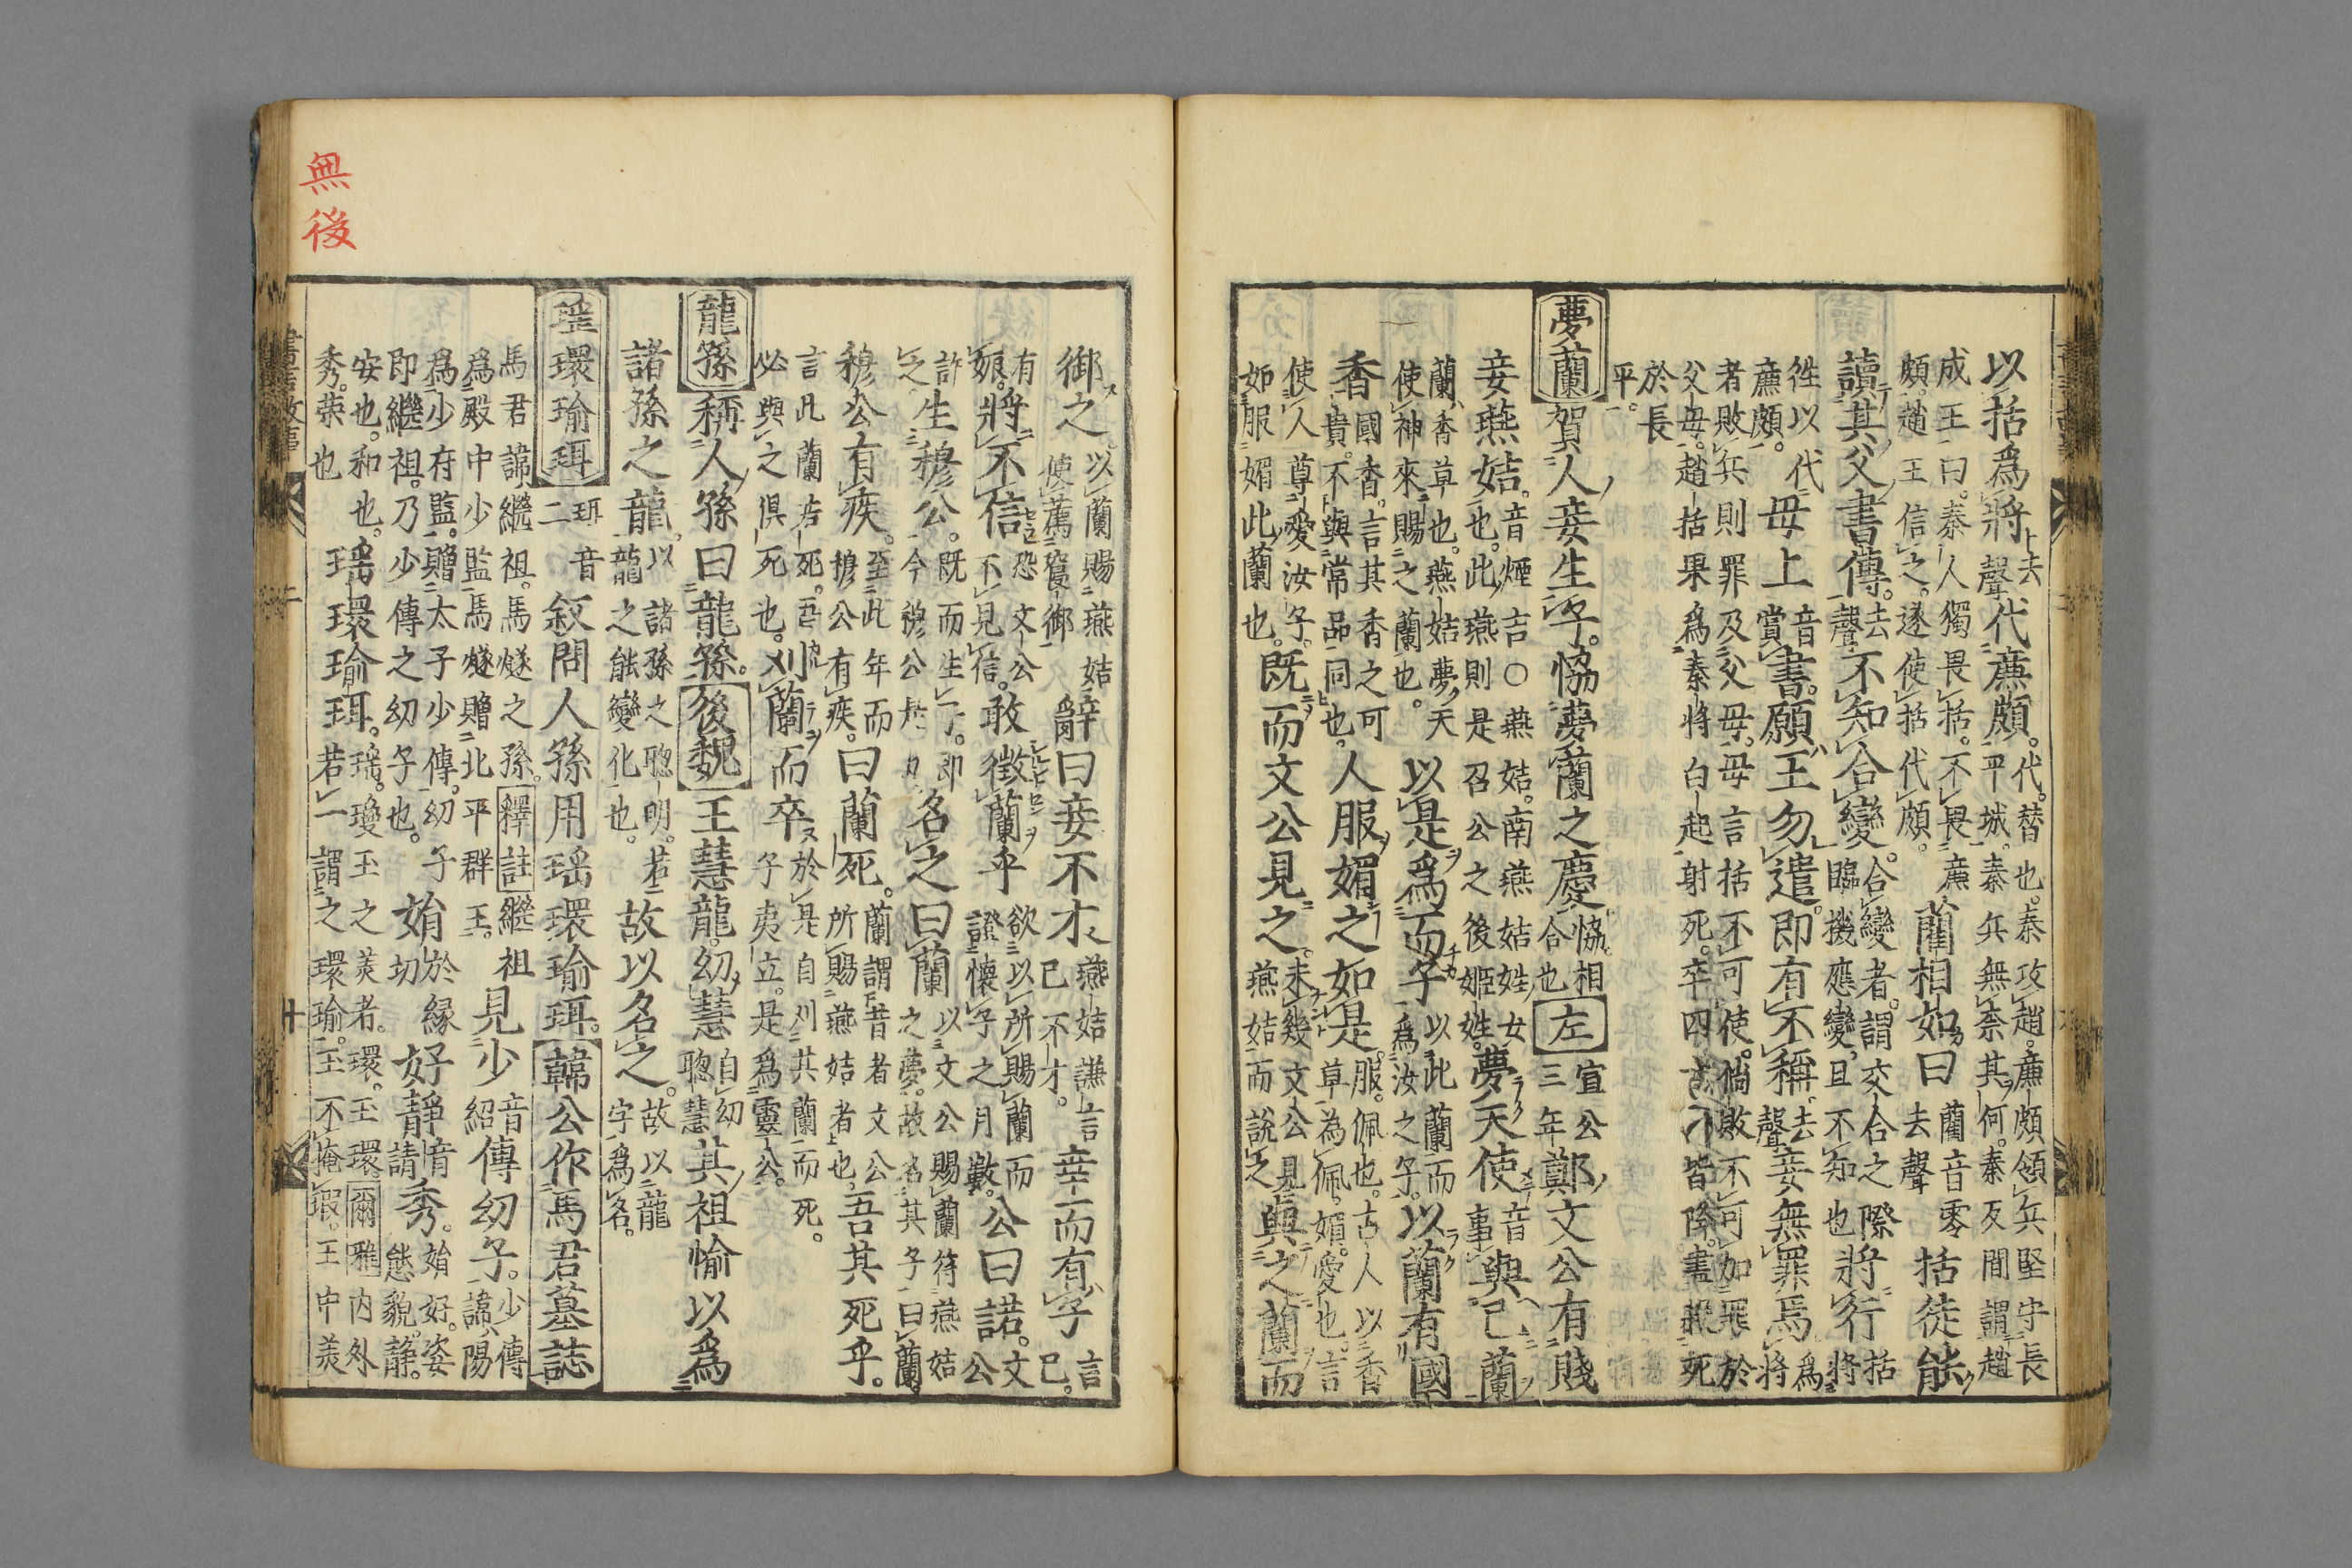 以括爲將去聲代廉頗。代。替也。秦攻趙。廉頗領兵堅守長平城。秦兵無奈其何。秦反間謂趙
成王曰。秦人獨畏括。不畏廉頗。趙王信之。遂使括代頗。藺相如曰藺音零去聲括徒能
讀其父書傳。去聲不知合變。合變者。謂交合之際臨機應變。且不知也將行括將
徃以代廉頗。毋上音賞書。願王勿遣。即有不稱去聲妾無罪焉爲將
者敗兵則罪及父母。母言括不可使。倘敗不可加罪於父母。趙括果爲秦將白起射死。卒四皆降。盡殺死
於長平。
夢蘭 賀人妾生子。恊夢蘭之慶恊。相合也 左 宣公三年鄭文公有賤
妾燕姞。音煙吉○燕姞。南燕姞姓女也。此燕則是召公之後姬姓。夢天使音事與己蘭
蘭香草也。燕姞夢天使神來賜之蘭也。以是爲而子以此蘭而爲汝之子。以蘭有國
香國香。言其香之可貴。不與常品同也。人服媚之如是。服。佩也。古人以香草為佩。媚。愛也。言
使人尊愛汝子。如服媚此蘭也。既而文公見之。未幾文公見燕姞而說之與之蘭而
御之。以蘭賜燕姞使薦寢御辭曰妾不才燕姞謙言己不才。幸而有子言己
有娠。將不信恐文公不見信。敢徵蘭乎欲以所賜蘭而證懷子之月數。公曰諾。文公
許之。生穆公。既而生子。即今穆公名之曰蘭以文公賜蘭符燕姞之夢。故名其子曰蘭。
穆公有疾。至此年而穆公有疾。曰蘭死。蘭謂昔者文公所賜燕姞者也。吾其死乎。
言此蘭若死。吾必與之俱死也。刈蘭而卒於是自刈其蘭而死。子夷立。是爲靈公。
龍孫 稱人孫曰龍孫。 後魏 王慧龍。幼慧自幼聰慧其祖愉以爲
諸孫之龍。以諸孫之聰明。若一龍之能變化也。故以名之。故以龍字爲名。
瑤環瑜珥 珥音二叙問人孫用瑤環瑜珥。 韓公作馬君墓誌
馬君諱繼祖。馬燧之孫。 釋註 繼祖爲殿中少監馬燧贈北平群王。見少音紹傳幼子。少傅諱陽
爲少府監。贈太子少傅。幼子即繼祖。乃少傳之幼子也。娋於緣切好靜情請秀。娋好。姿態貌。静。
安也。和也。秀。荣也瑤環瑜珥。瑤。瓊玉之美者。環。玉環。 爾雅 内外若一謂之環瑜。玉不掩瑕。王中美
無後